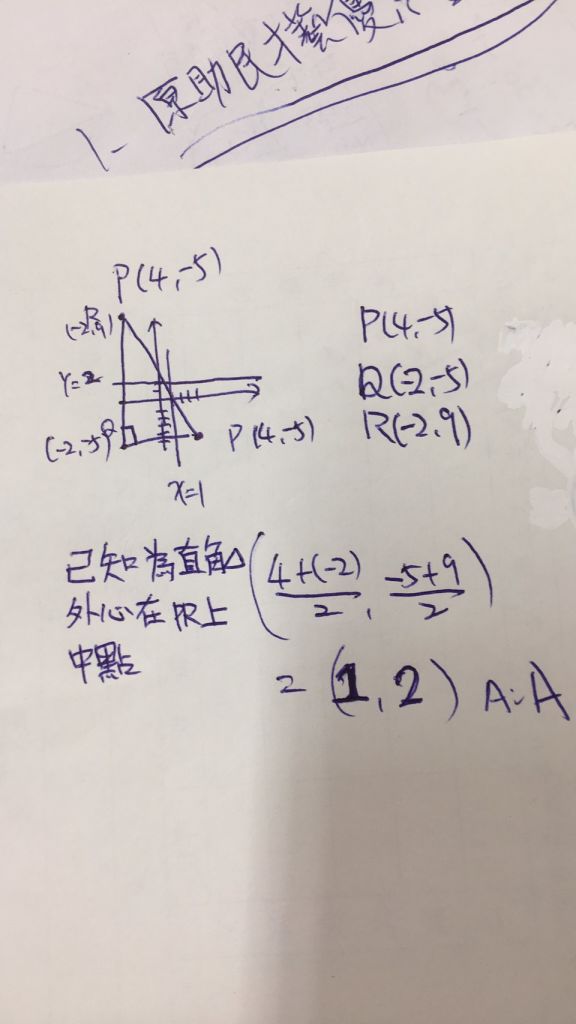 1-
P(4,-5)
(-2,9) R
Y=2
(-2,-5) Q
P(4,-5)
x=1
P(4,-5)
Q(-2,-5)
R(-2,9)
已知為直角△
外心在PR上
中點
(4+(-2)/2, -5+9/2)
= (1,2) A:A